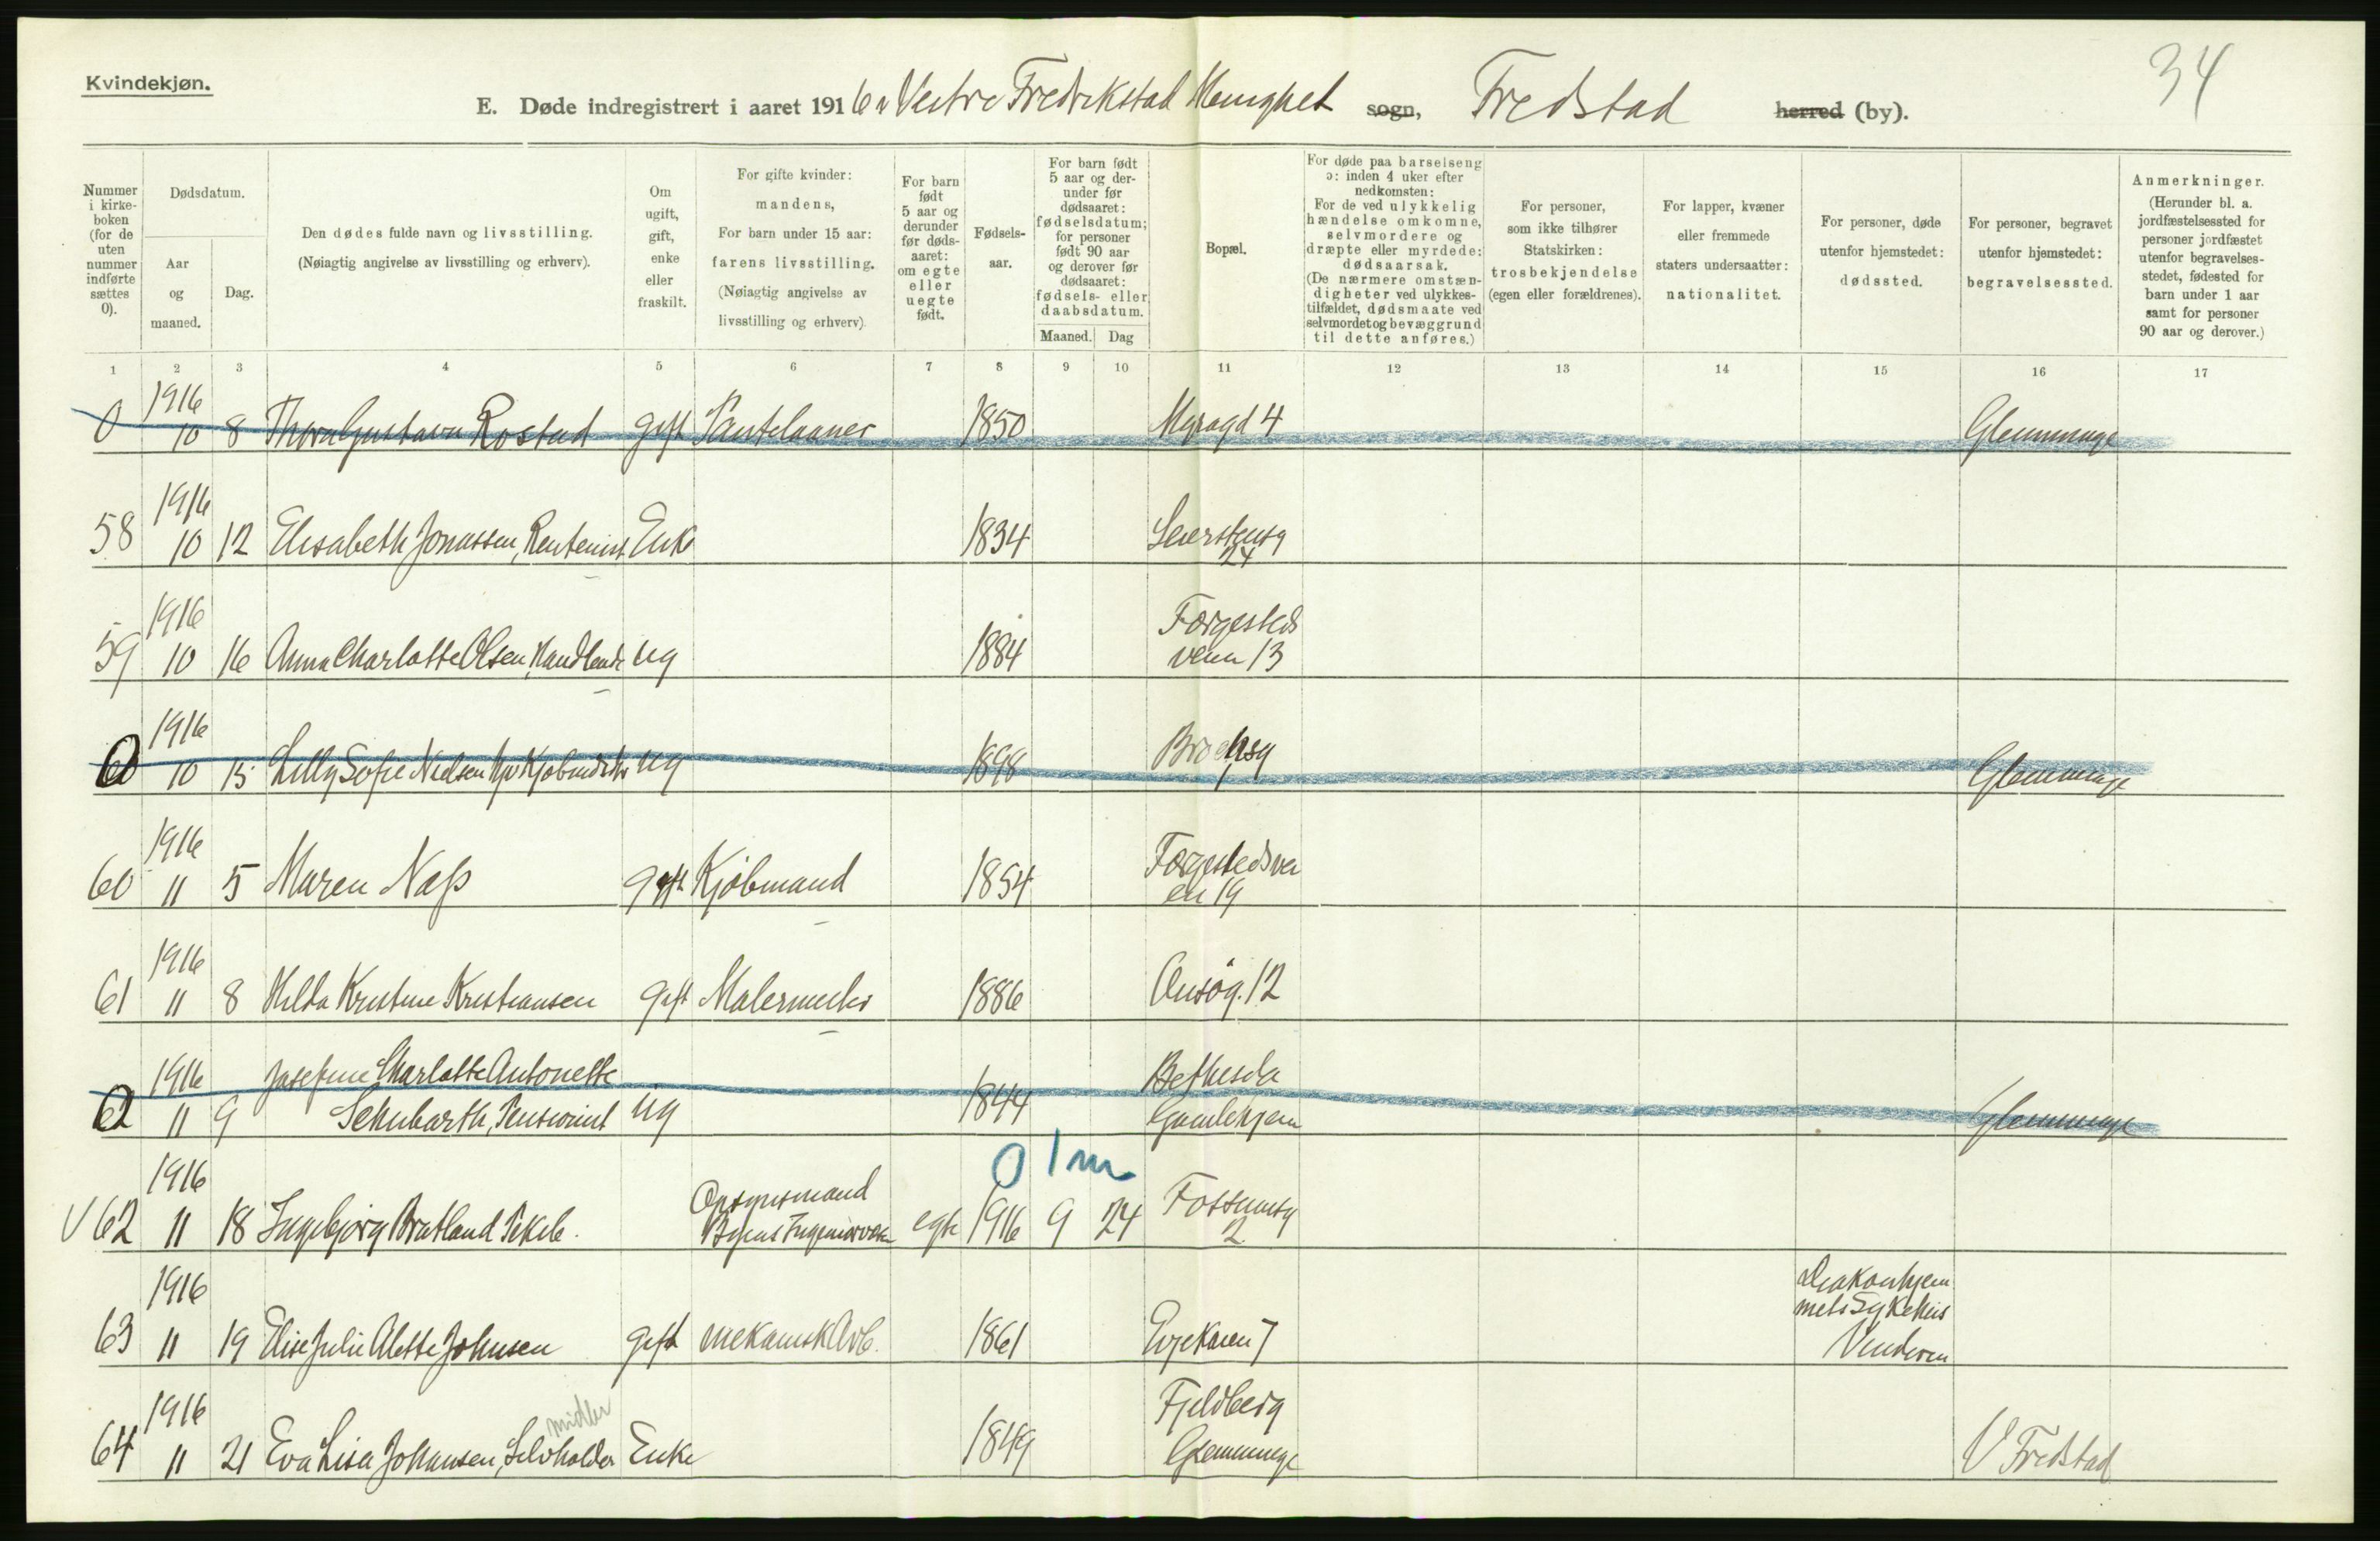 Kvindekjøn.
34
E. Døde indregistrert i aaret 1916 i Vestre Fredrikstad Menighet sogn, Fredstad herred (by).
Nummer i kirke-boken (for de uten nummer indførte sættes 0).
Dødsdatum.
Aar og maaned.
Dag.
Den dødes fulde navn og livsstilling. (Nøiagtig angivelse av livsstilling og erhverv).
Om ugift, gift, enke eller fraskilt.
For gifte kvinder: mandens, For barn under 15 aar: farens livsstilling. (Nøiagtig angivelse av livsstilling og erhverv)
For barn født 5 aar og derunder før døds-aaret: om egte eller uegte født.
Fødsels-aar.
For barn født 5 aar og der-under før dødsaaret: fødselsdatum; for personer født 90 aar og derover før dødsaaret: fødsels- eller daabsdatum.
Maaned. Dag
Bopæl.
For døde paa barselseng ɔ: inden 4 uker efter nedkomsten: For de ved ulykkelig hændelse omkomne, selvmordere og dræpte eller myrdede: dødsaarsak. (De nærmere omstæn-digheter ved ulykkes-tilfældet, dødsmaate ved selvmordet og bevæggrund til dette anføres.)
For personer, som ikke tilhører Statskirken: trosbekjendelse (egen eller forældrenes).
For lapper, kvæner eller fremmede staters undersaatter: nationalitet.
For personer, døde utenfor hjemstedet: dødssted.
For personer, begravet utenfor hjemstedet: begravelsessted.
Anmerkninger. (Herunder bl. a. jordfæstelsessted for personer jordfæstet utenfor begravelses-stedet, fødested for barn under 1 aar samt for personer 90 aar og derover.)
1 2 3 4 5 6 7 8 9 10 11 12 13 14 15 16 17
1916
0 10 8 Thora Gustava Rostad gift Pantelaaner 1850 Myragd 4 Glemminge
1916
58 10 12 Elisabeth Jonassen, Rentenist Enke 1834 Leirstensg
24
1916 Forgesteds
59 10 16 Anna Charlotte Olsen, Handlende ug 1884 veien 13
1916 Brochsg
0 10 15 Lilly Sofie Nielsen ug 1898 Glemminge
1916 Forgestedsvei
60 11 5 Maren Næss gift Kjøbmand 1854 en 19
1916
61 11 8 Hilda Kristine Kristiansen gift Malermester 1886 12
1916 Josefine Charlotte Antonette Bethesda
0 11 9 Schubarth, Pensionist ug 1844 Gamlehjem Glemminge
0 1 m
1916 Opsynsmand Fossumsg
V 62 11 18 Ingebjørg Bratland Byens Ingeniørvæsen egte 1916 9 24 2
1916 Diakonhjem
mets Sykehus
63 11 19 Elise Julie Alette Johnsen gift mekanisk Arb. 1861 7 Vinderen
1916 midler Fjeldberg
64 11 21 Eva Lisa Johansen, Selvholder Enke 1849 Glemminge V Fredstad